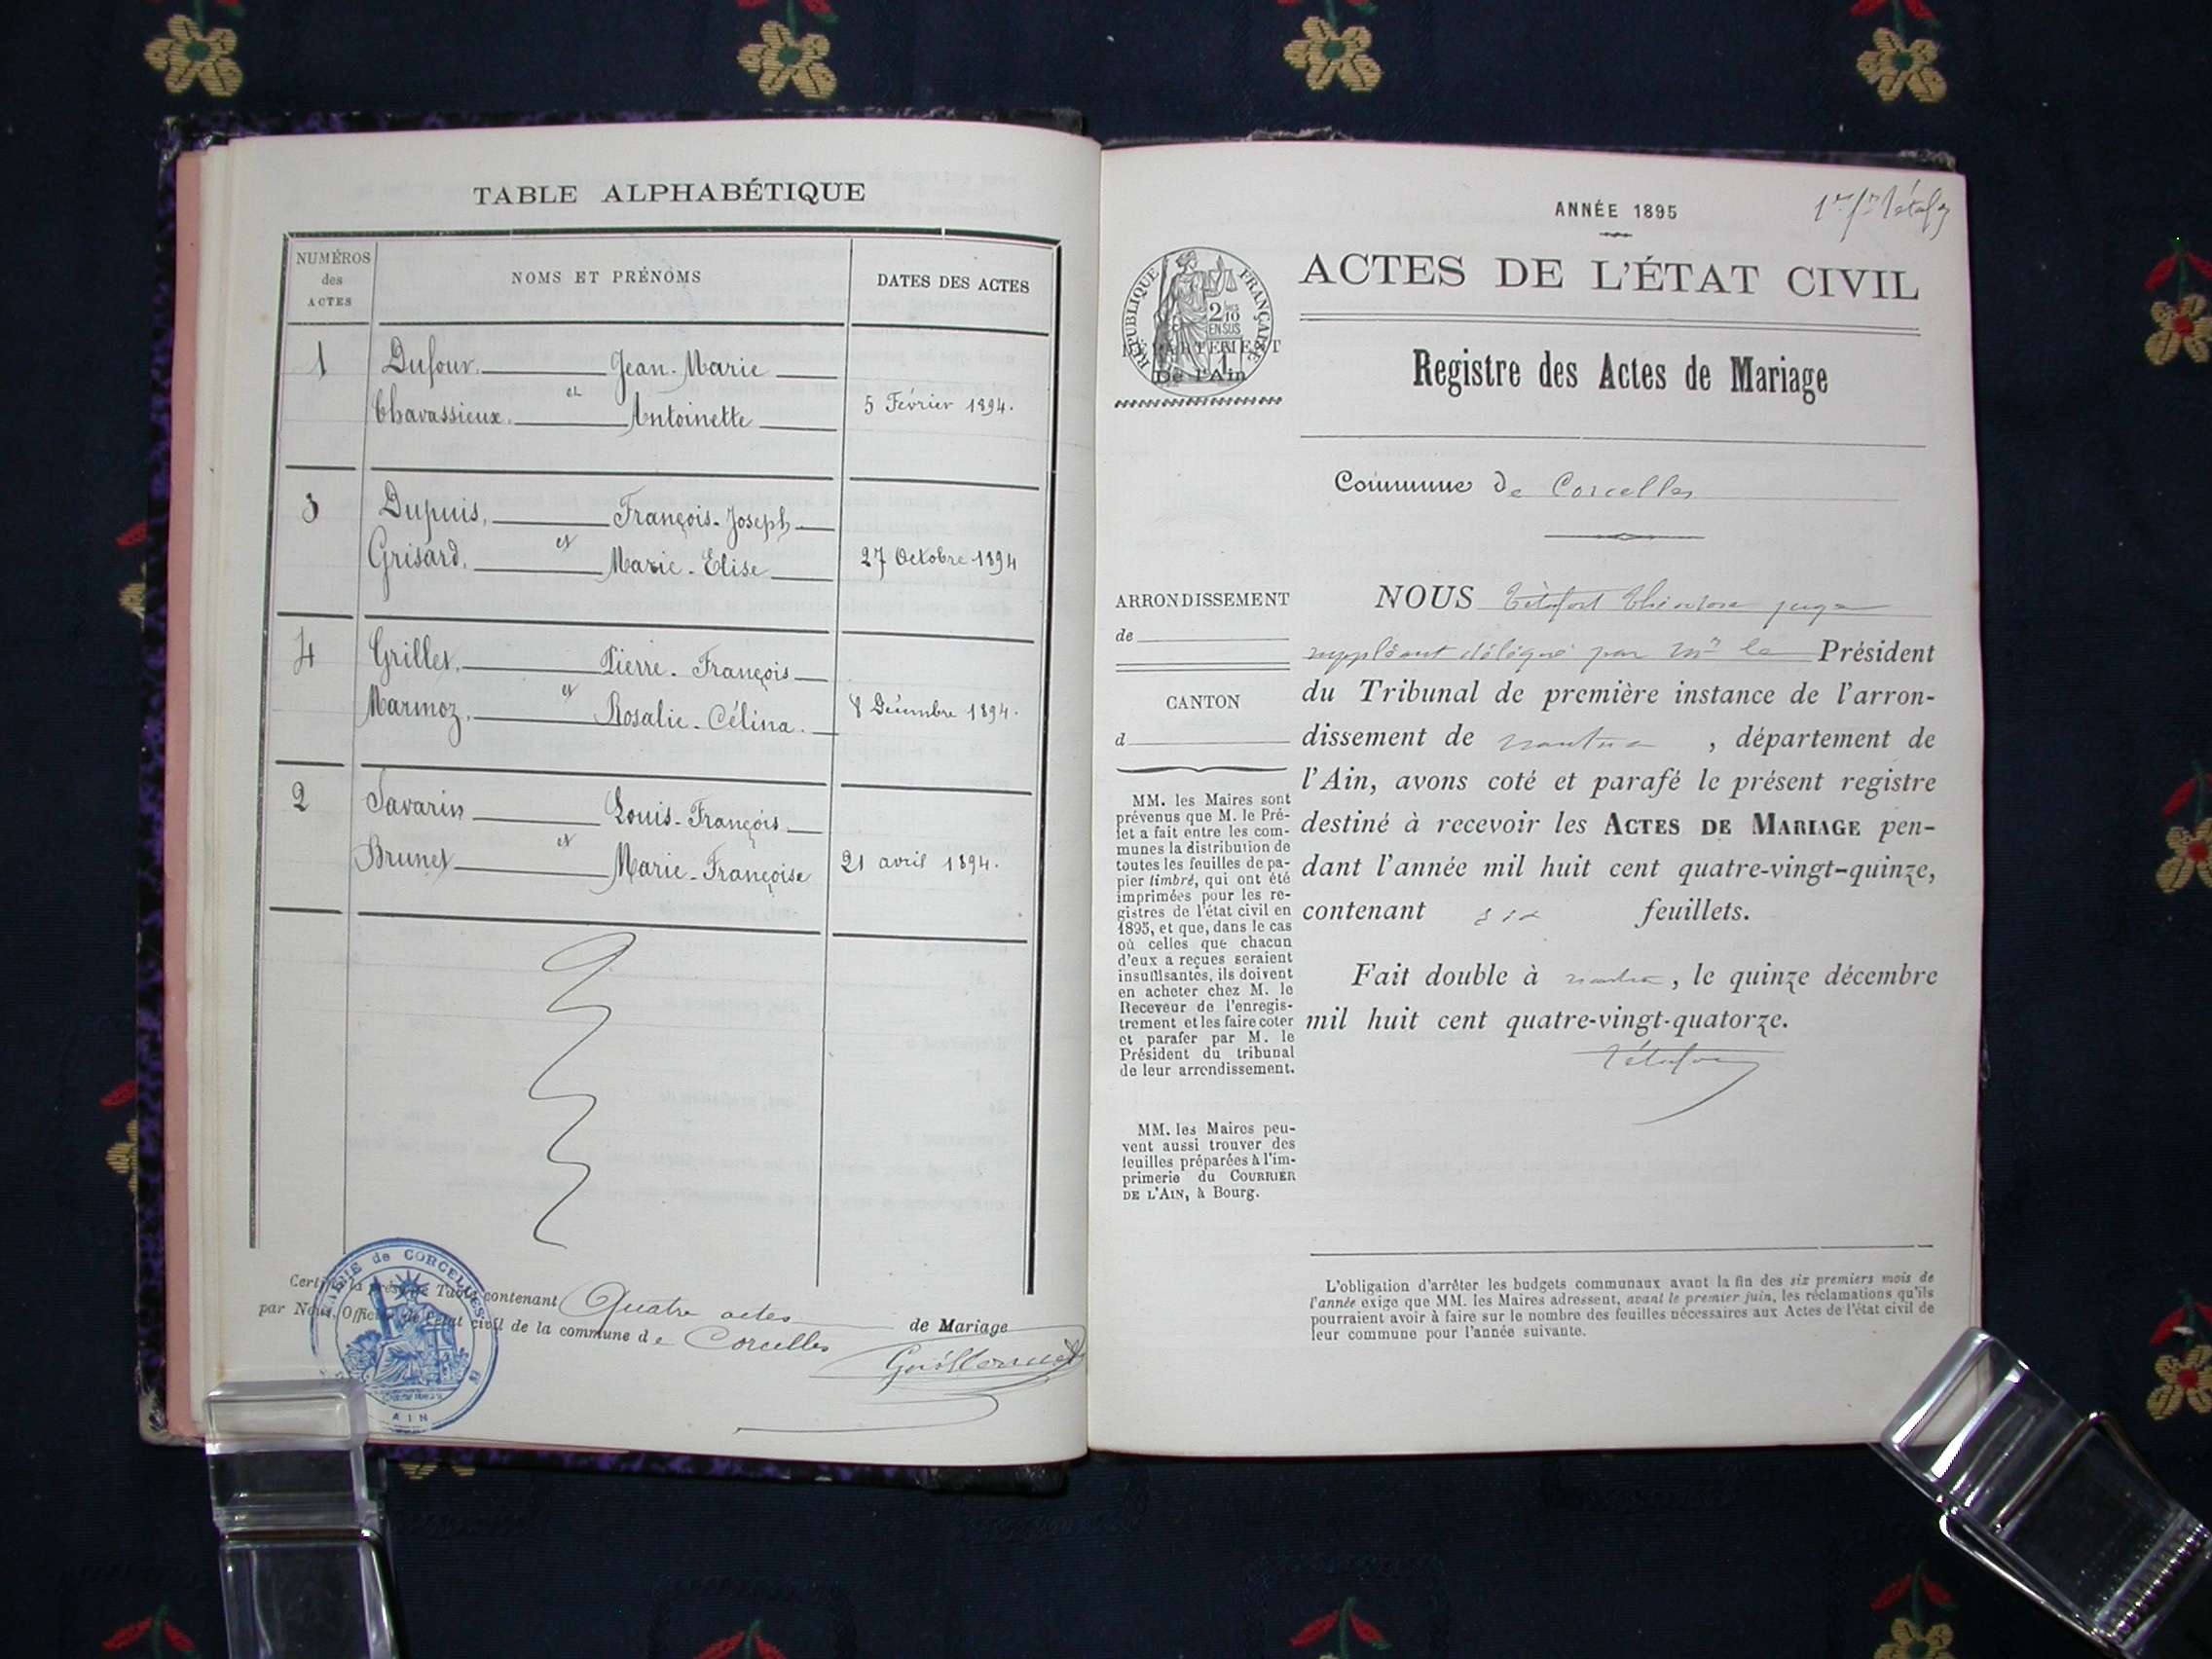 TABLE ALPHABÉTIQUE
NUMÉROS
des
ACTES
NOMS ET PRÉNOMS
DATES DES ACTES
1 Dufour, Jean-Marie
et
Chavassieux, Antoinette 5 Février 1894.
3 Dupuis, François-Joseph
et
Grisard, Marie-Elise 27 Octobre 1894
4 Grillet, Pierre-François
et
Marmoz, Rosalie-Célina 8 Décembre 1894.
2 Savarin Louis-François
et
Brunet Marie-Françoise 21 avril 1894.
Certifié la présente Table contenant Quatre actes de Mariage
par Nous, Officier de l'état civil de la commune de Corcelles
MAIRIE de CORCELLES
AIN
ANNÉE 1895
ACTES DE L'ÉTAT CIVIL
RÉPUBLIQUE FRANÇAISE
2/10
EN SUS
DÉPARTEMENT
De l'Ain
Registre des Actes de Mariage
Commune de Corcelles
ARRONDISSEMENT
de
CANTON
d
MM. les Maires sont
prévenus que M. le Pré-
fet a fait entre les com-
munes la distribution de
toutes les feuilles de pa-
pier timbré, qui ont été
imprimées pour les re-
gistres de l'état civil en
1895, et que, dans le cas
où celles que chacun
d'eux a reçues seraient
insuffisantes, ils doivent
en acheter chez M. le
Receveur de l'enregis-
trement et les faire coter
et parafer par M. le
Président du tribunal
de leur arrondissement.
MM. les Maires peu-
vent aussi trouver des
feuilles préparées à l'im-
primerie du COURRIER
DE L'AIN, à Bourg.
NOUS juge
suppléant délégué par Mr le Président
du Tribunal de première instance de l'arron-
dissement de nantua , département de
l'Ain, avons coté et parafé le présent registre
destiné à recevoir les ACTES DE MARIAGE pen-
dant l'année mil huit cent quatre-vingt-quinze,
contenant six feuillets.
Fait double à nantua, le quinze décembre
mil huit cent quatre-vingt-quatorze.
L'obligation d'arrêter les budgets communaux avant la fin des six premiers mois de
l'année exige que MM. les Maires adressent, avant le premier juin, les réclamations qu'ils
pourraient avoir à faire sur le nombre des feuilles nécessaires aux Actes de l'état civil de
leur commune pour l'année suivante.